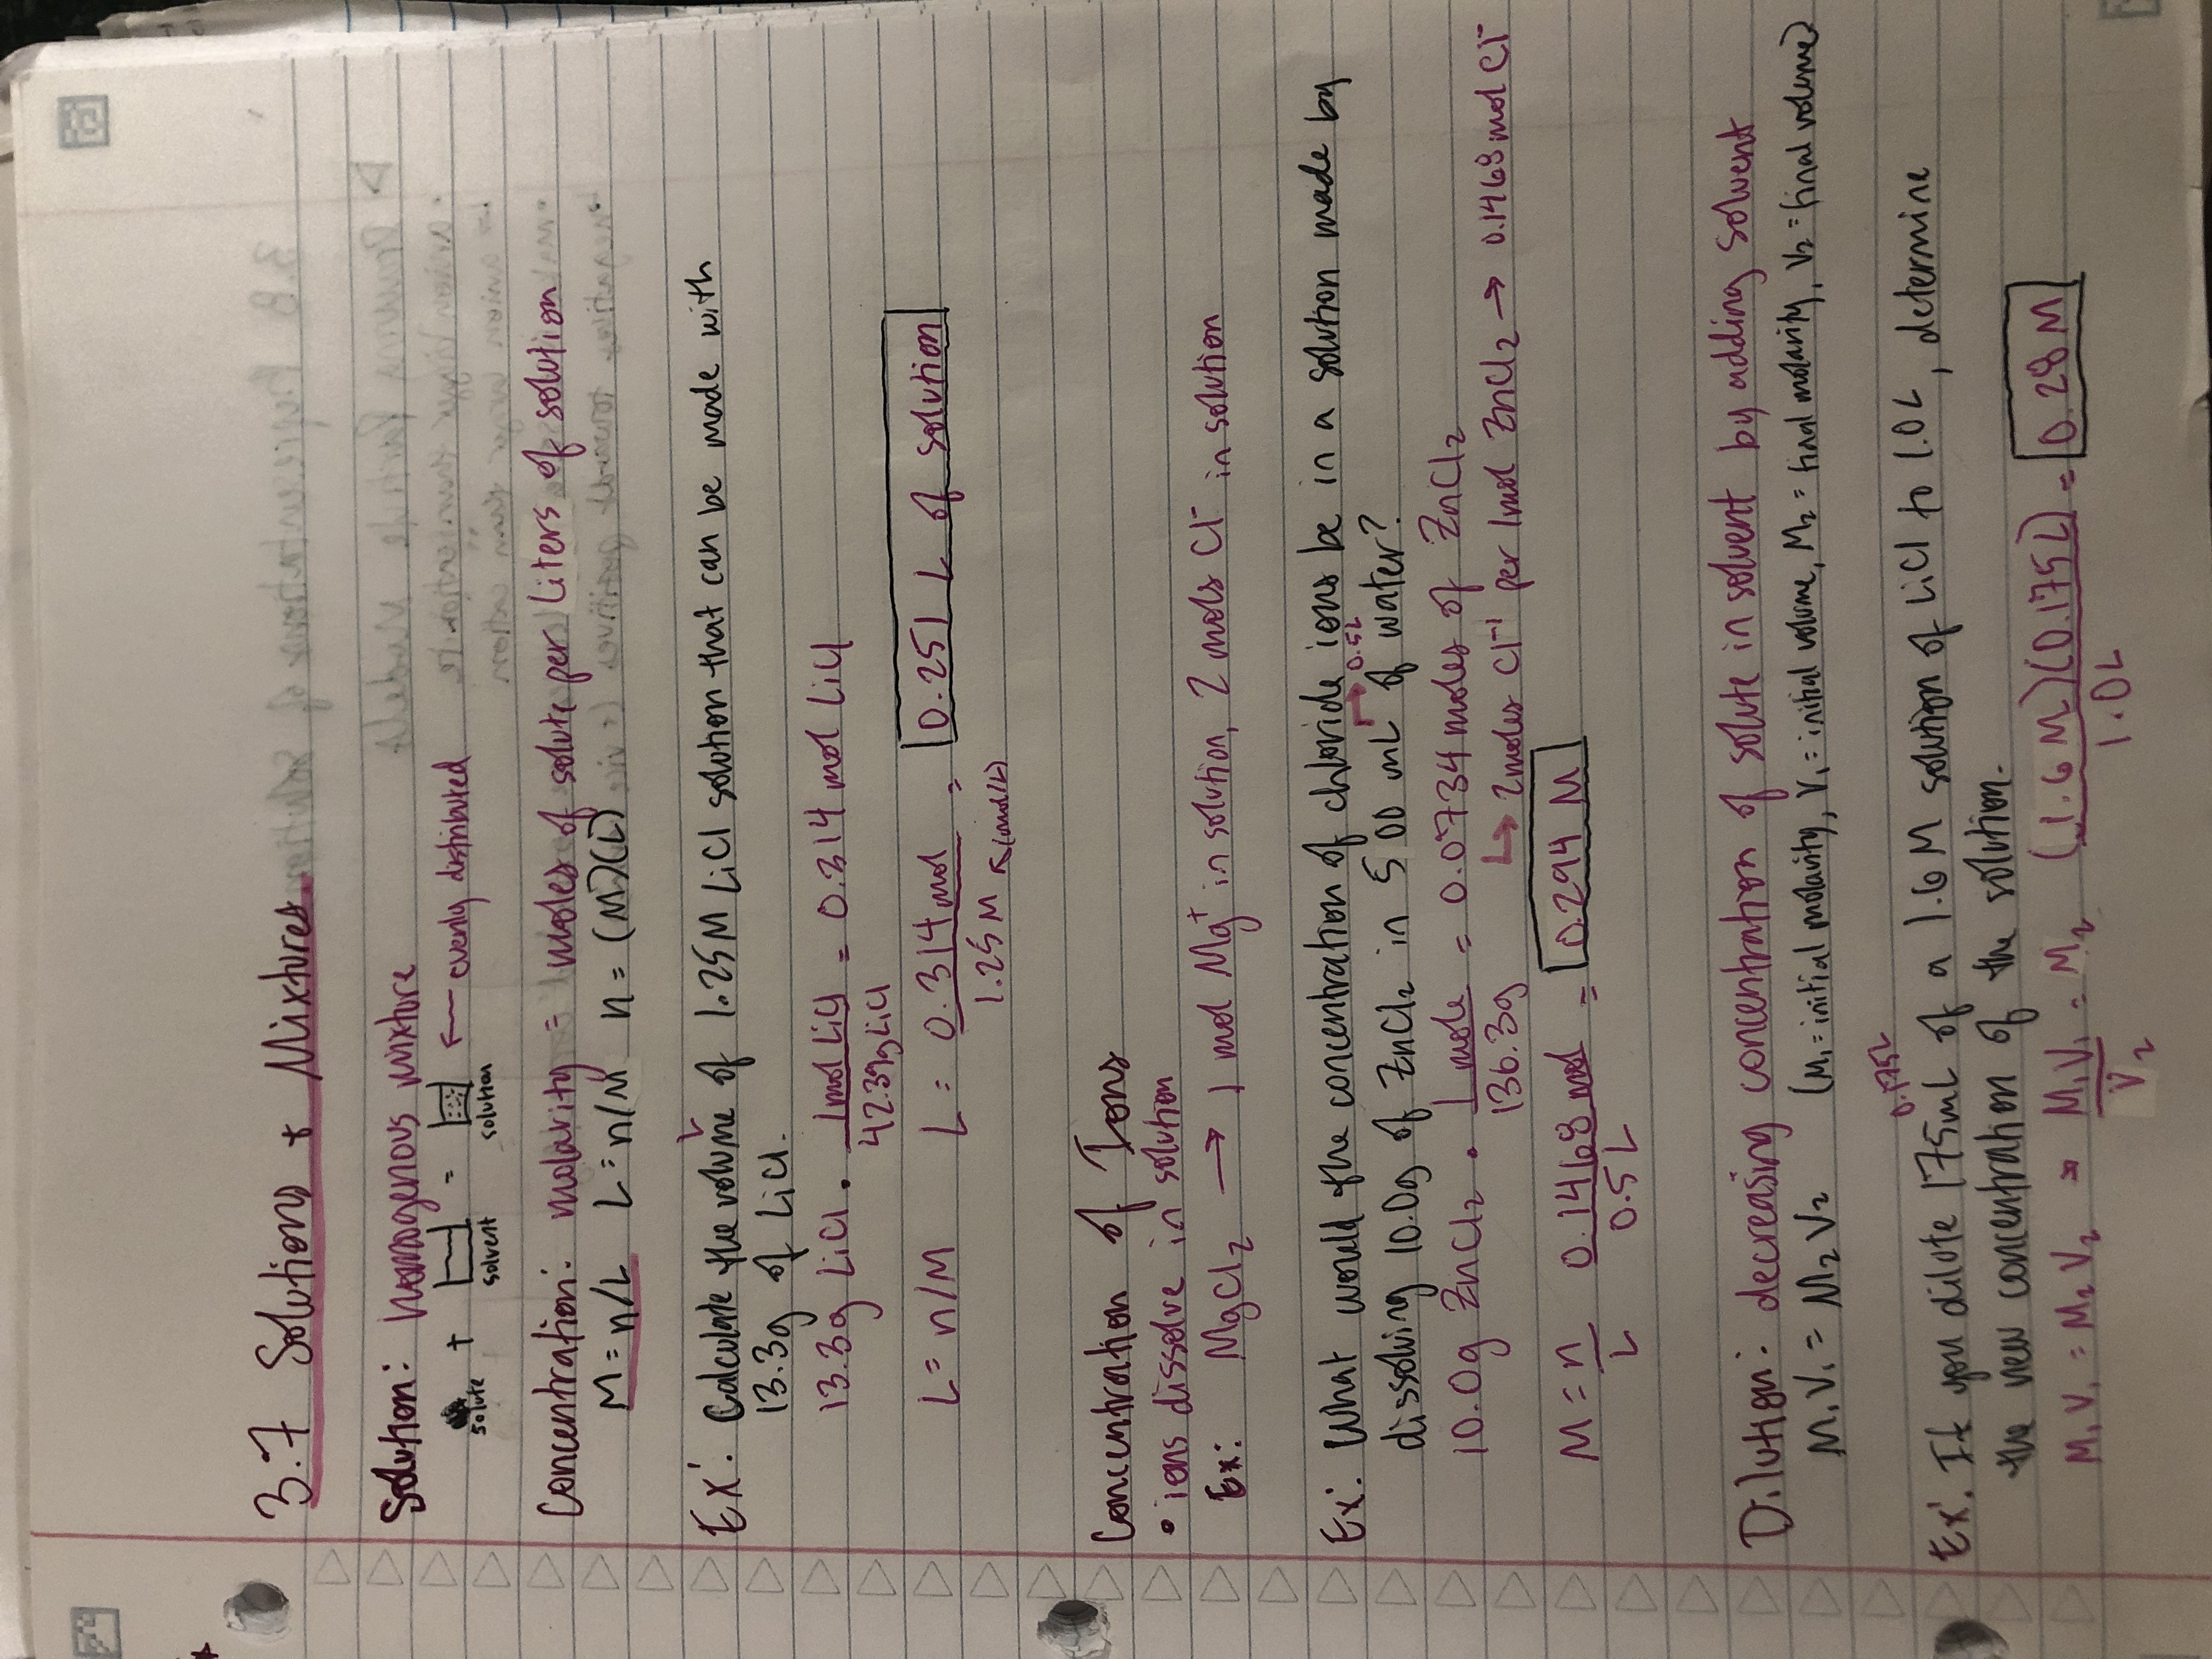 3.7 Solutions + Mixtures
Solution: homogenous mixture
solute + solvent = solution ← evenly distributed
Concentration: molarity = moles of solute per Liters of solution
M = n/L L = n/M n = (M)(L)
Ex: Calculate the volume of 1.25M LiCl solution that can be made with
13.3g of LiCl.
13.3g LiCl · 1mol LiCl / 42.39g LiCl = 0.314 mol LiCl
L = n/M L = 0.314 mol / 1.25 M ↖(mol/L) = 0.251 L of solution
Concentration of Ions
• ions dissolve in solution
Ex: MgCl2 → 1 mol Mg+ in solution, 2 mols Cl- in solution
Ex: What would the concentration of chloride ions be in a solution made by
dissolving 10.0g of ZnCl2 in 500 mL → 0.5L of water?
10.0g ZnCl2 · 1 mole / 136.3g = 0.0734 moles of ZnCl2
↳ 2 moles Cl-1 per 1mol ZnCl2 → 0.1468 mol Cl-
M = n / L 0.1468 mol / 0.5 L = 0.294 M
Dilution: decreasing concentration of solute in solvent by adding solvent
M1V1 = M2V2 (M1 = initial molarity, V1 = initial volume, M2 = final molarity, V2 = final volume)
0.175L
Ex: If you dilute 175mL of a 1.6 M solution of LiCl to 1.0 L, determine
the new concentration of the solution.
M1V1 = M2V2 = M1V1 / V2 = M2 (1.6 M)(0.175L) / 1.0 L = 0.28 M